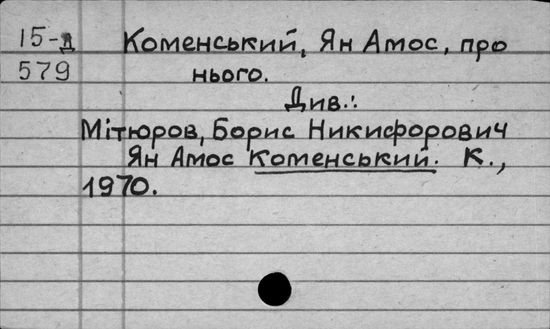 15-д
579
Коменський, Ян Амос, про
нього.
Див.:
Мітюров, Борис Никифорович
Ян Амос Коменський. К.,
1970.